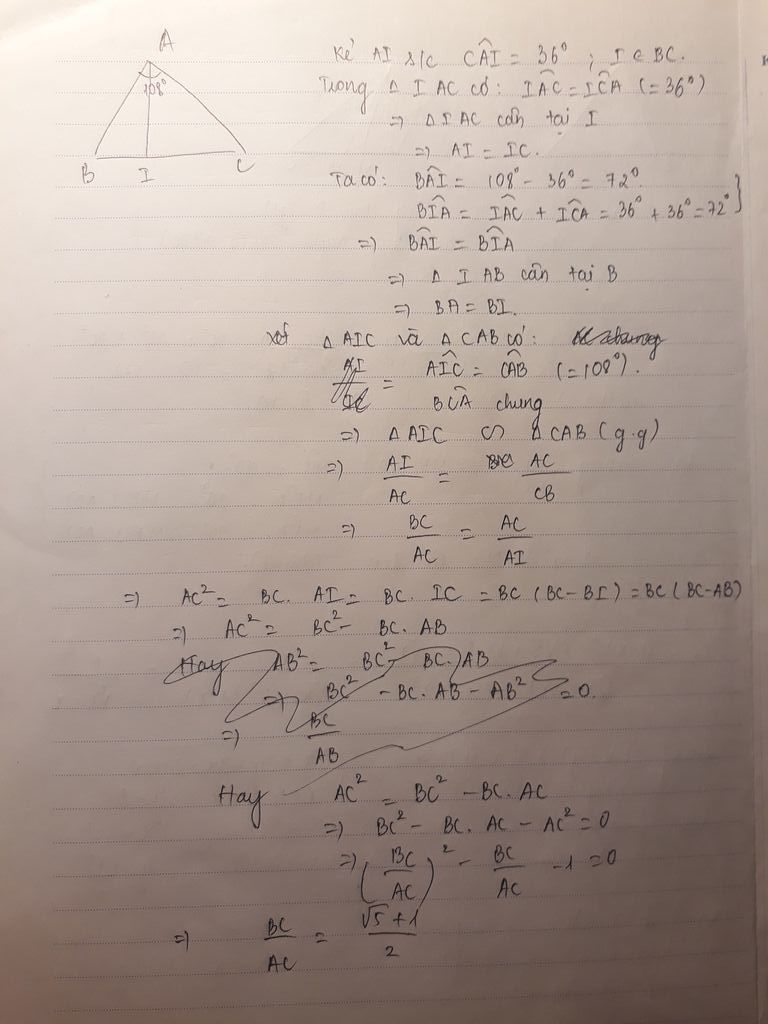 A
108°
B I C
Kẻ AI s/c CÂI = 36° ; I ∈ BC.
Trong Δ IAC có: IÂC = IĈA (= 36°)
=> Δ IAC cân tại I
=> AI = IC.
Ta có: BÂI = 108° - 36° = 72°.
BÎA = IÂC + IĈA = 36° + 36° = 72° }
=> BÂI = BÎA
=> Δ IAB cân tại B
=> BA = BI.
Xét Δ AIC và Δ CAB có:
AÎC = CÂB (= 108°).
BĈA chung
=> Δ AIC ∽ Δ CAB (g.g)
=> AI/AC = AC/CB
=> BC/AC = AC/AI
=> AC² = BC. AI = BC. IC = BC (BC - BI) = BC (BC - AB)
=> AC² = BC² - BC. AB
Hay AB² = BC² - BC. AB
=> BC² - BC. AB - AB² = 0.
=> BC/AB
Hay AC² = BC² - BC. AC
=> BC² - BC. AC - AC² = 0
=> (BC/AC)² - BC/AC - 1 = 0
=> BC/AC = (√5 + 1)/2